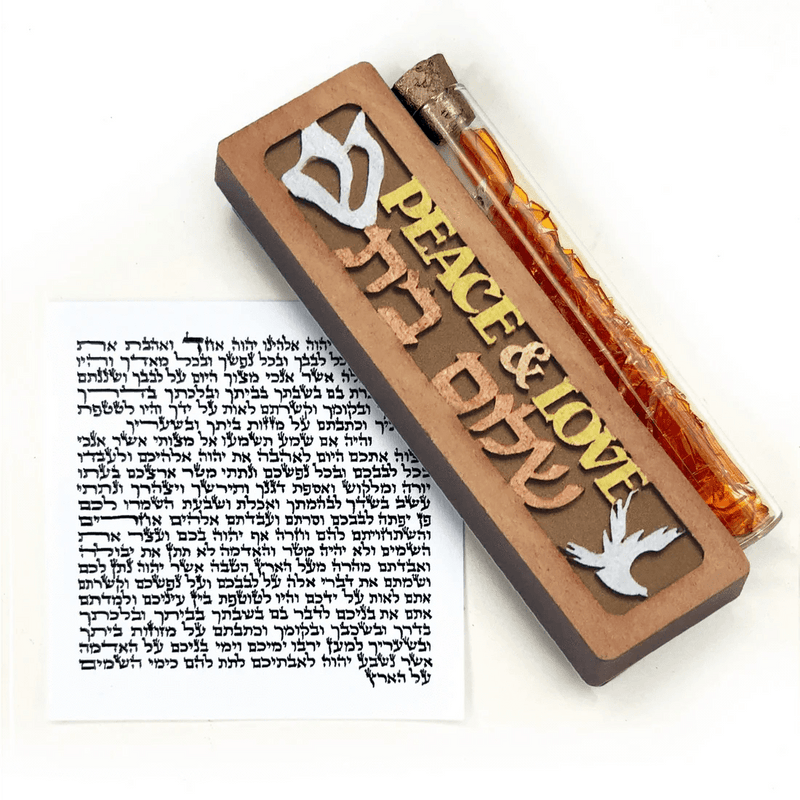 ש
PEACE & LOVE
שלום בית
יהוה אלהינו יהוה אחד ואהבת את
לבבך ובכל נפשך ובכל מאדך והיו
אשר אנכי מצוך היום על לבבך ושננתם
בם בשבתך בביתך ובלכתך בדרך
ובקומך וקשרתם לאות על ידך והיו לטטפת
וכתבתם על מזזות ביתך ובשעריך
והיה אם שמע תשמעו אל מצותי אשר אנכי
אתכם היום לאהבה את יהוה אלהיכם ולעבדו
בכל לבבכם ובכל נפשכם ונתתי מטר ארצכם בעתו
יורה ומלקוש ואספת דגנך ותירשך ויצהרך ונתתי
עשב בשדך לבהמתך ואכלת ושבעת השמרו לכם
פן יפתה לבבכם וסרתם ועבדתם אלהים אחרים
והשתחויתם להם וחרה אף יהוה בכם ועצר את
השמים ולא יהיה מטר והאדמה לא תתן את יבולה
ואבדתם מהרה מעל הארץ הטבה אשר יהוה נתן לכם
ושמתם את דברי אלה על לבבכם ועל נפשכם וקשרתם
אתם לאות על ידכם והיו לטוטפת בין עיניכם ולמדתם
אתם את בניכם לדבר בם בשבתך בביתך ובלכתך
בדרך ובשכבך ובקומך וכתבתם על מזוזות ביתך
ובשעריך למען ירבו ימיכם וימי בניכם על האדמה
אשר נשבע יהוה לאבתיכם לתת להם כימי השמים
על הארץ